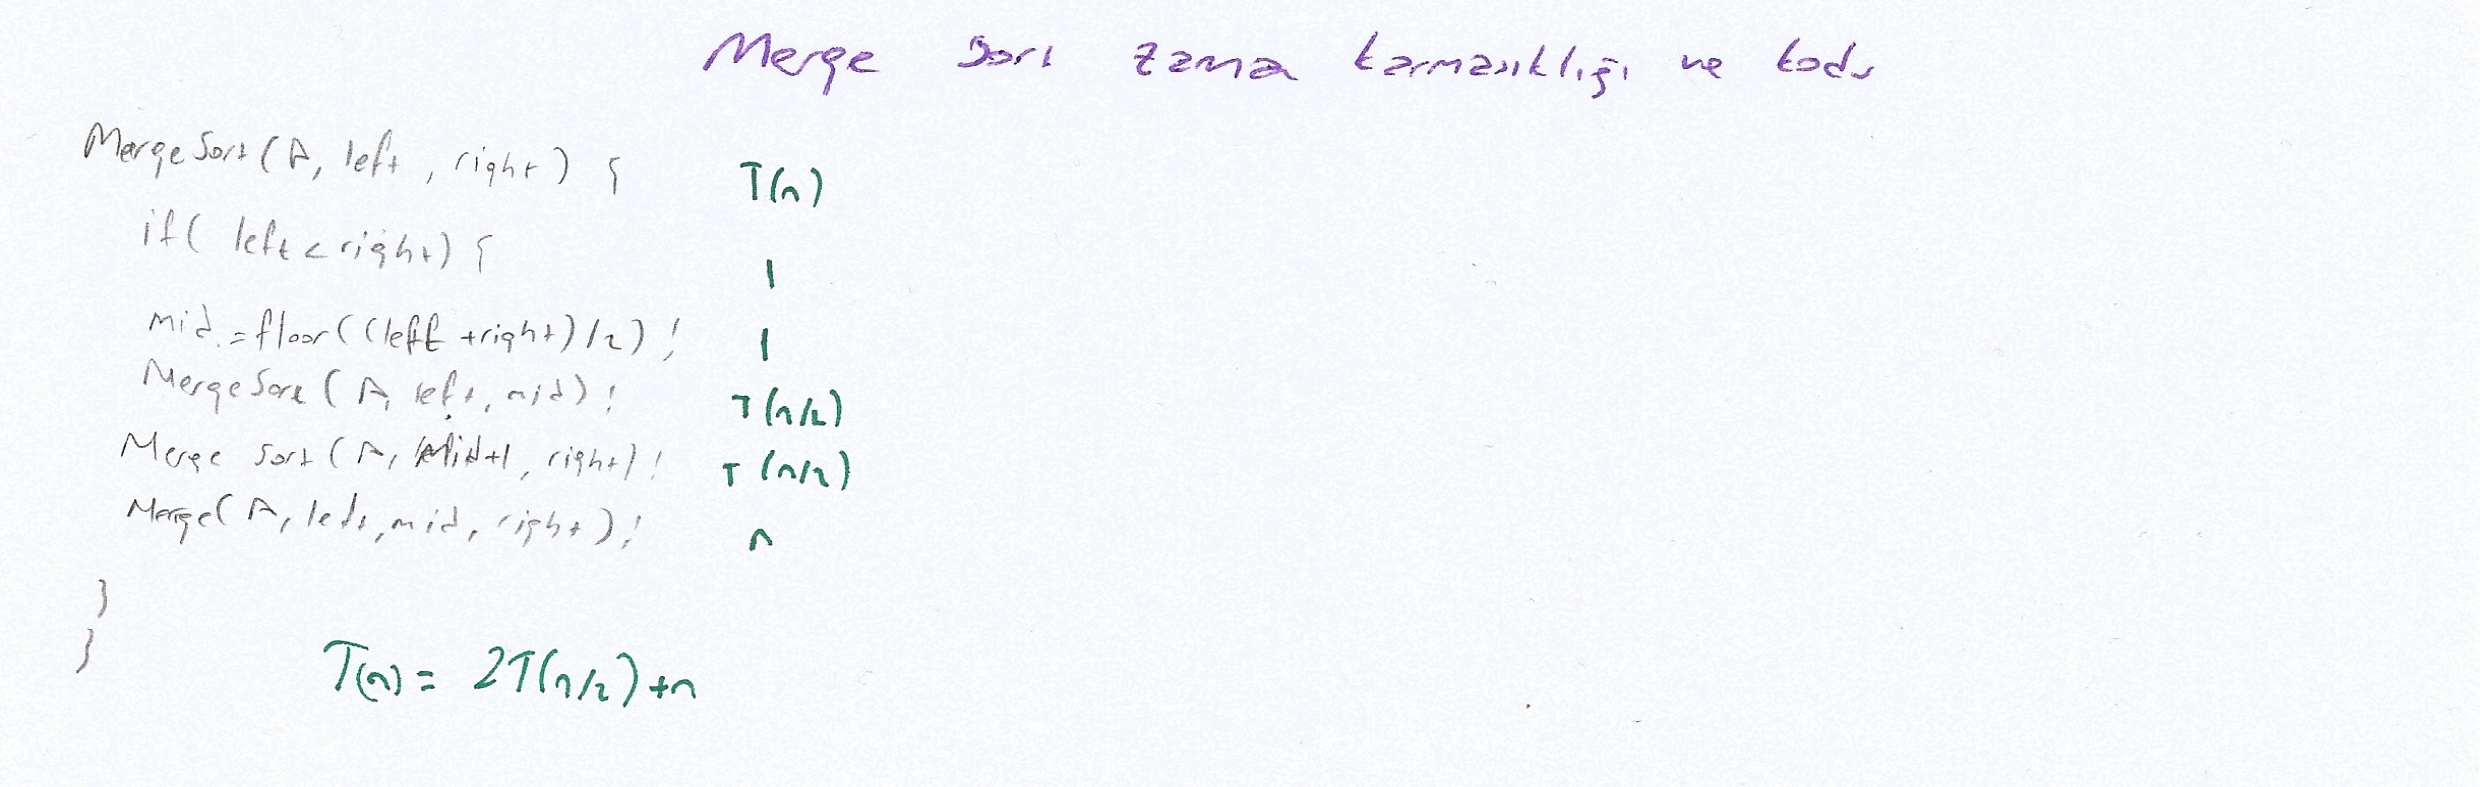 Merge Sort zama karmasıklığı ve kodu
MergeSort(A, left, right) {    T(n)
if( left < right) {    1
mid = floor((left +right)/2) ;    1
MergeSort( A, left, mid) ;    T(n/2)
Merge Sort (A, Mid+1, right) ;    T(n/2)
Merge( A, left, mid, right) ;    n
}
}
T(n) = 2T(n/2)+n